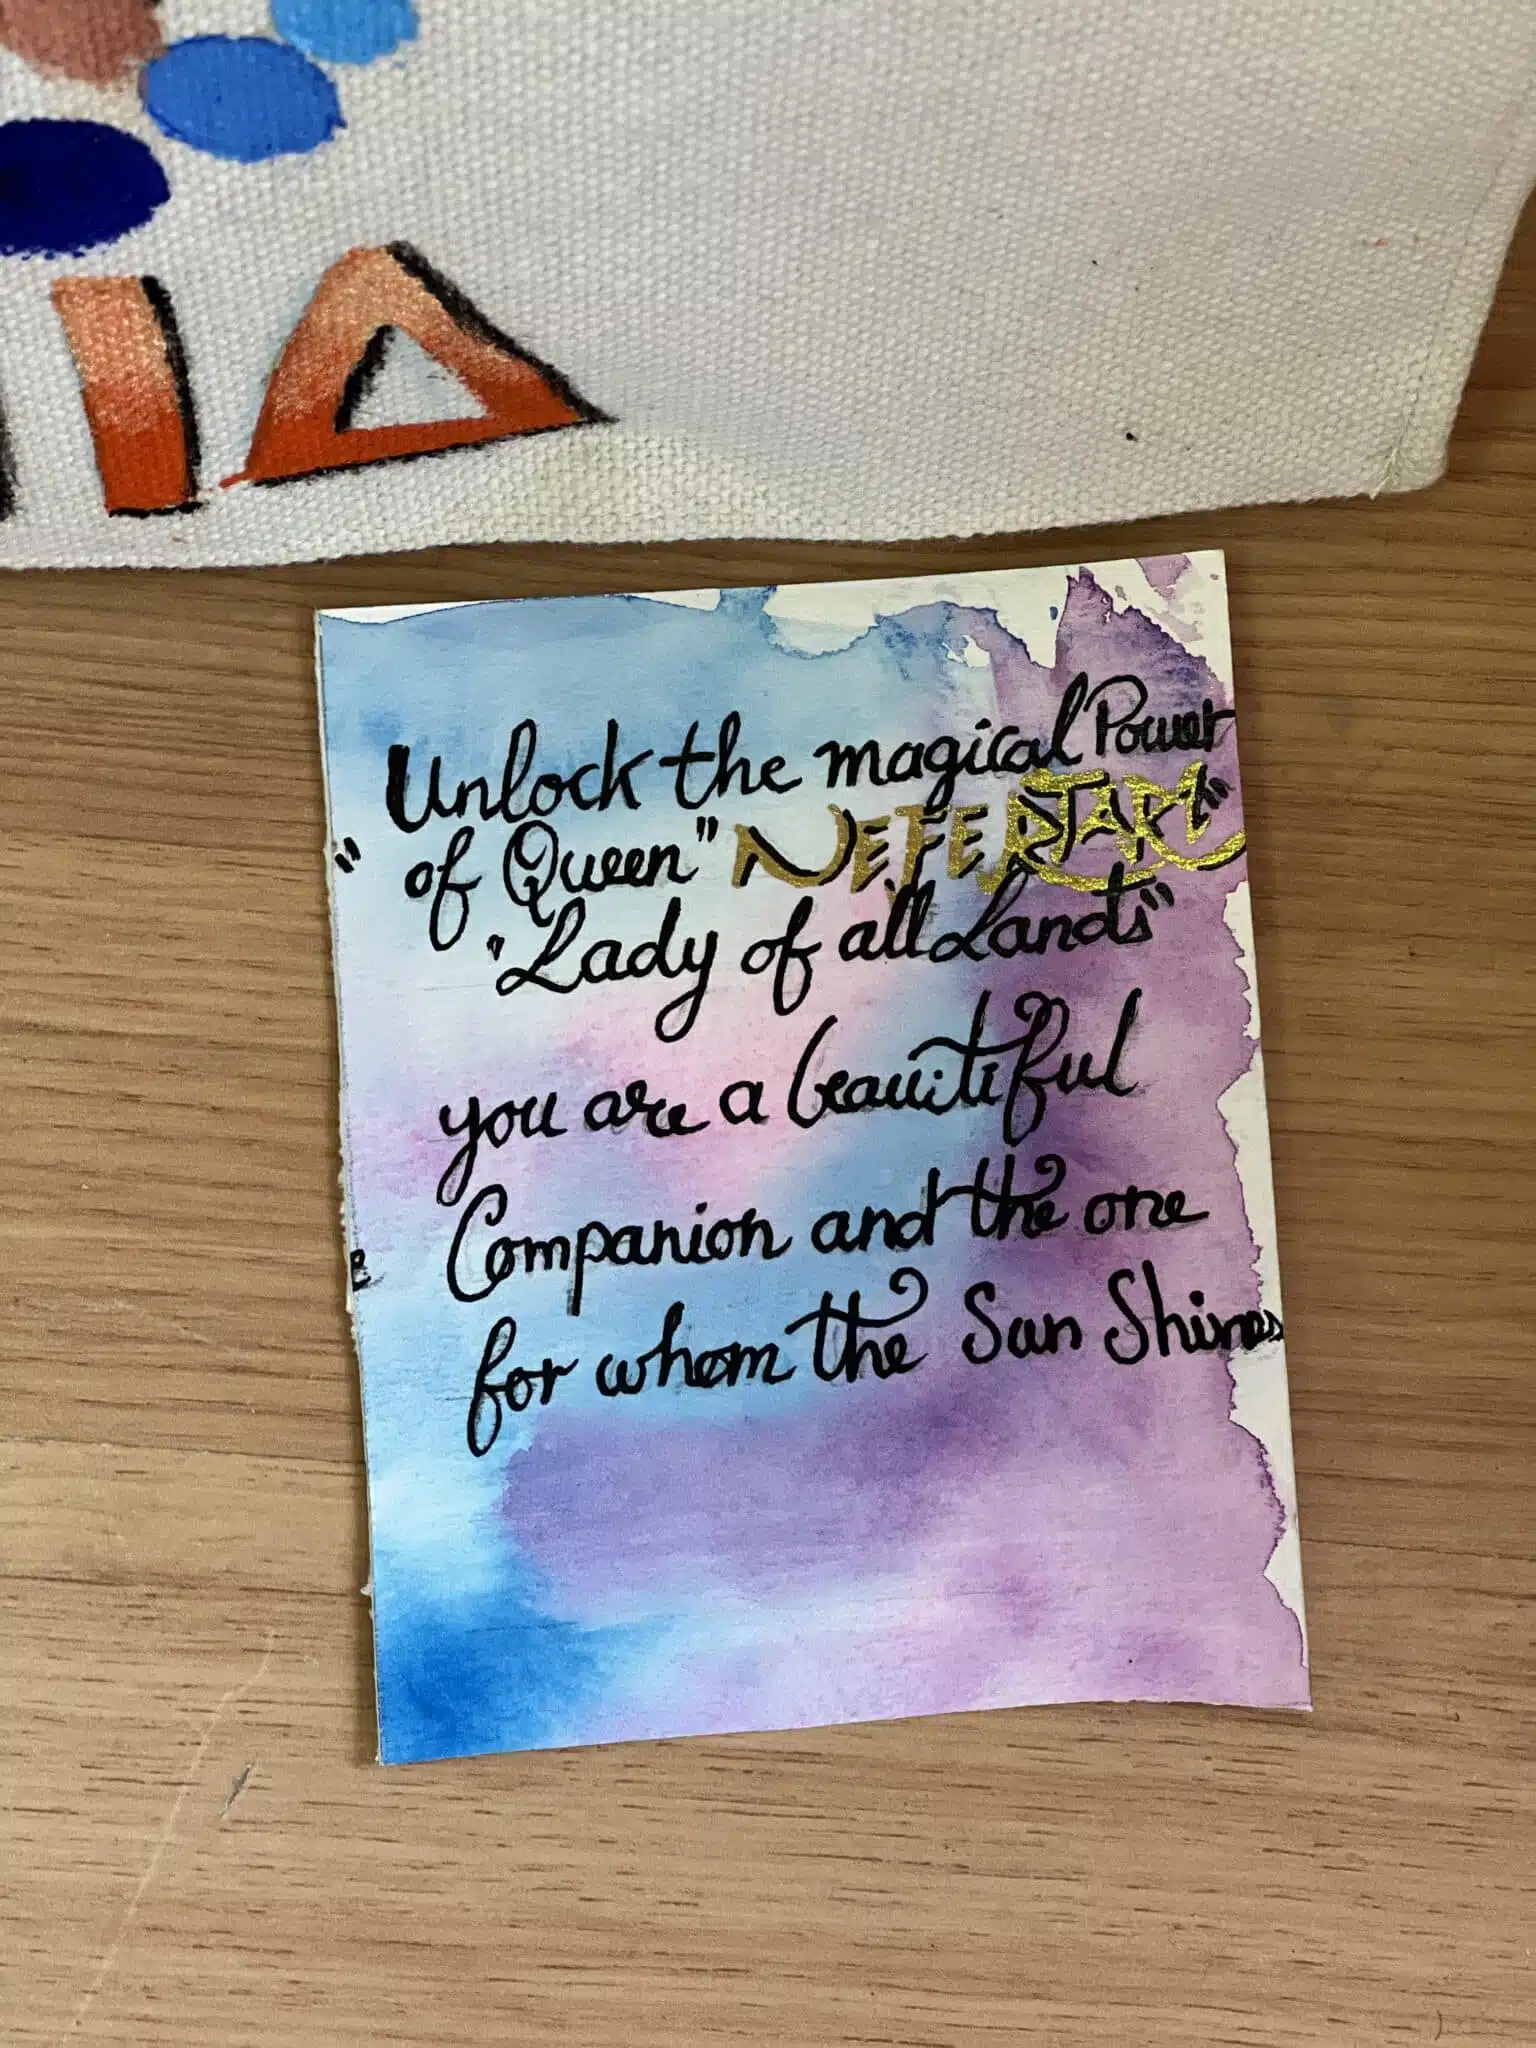 IA
Unlock the magical Power
" of Queen" NEFERTARI"
"Lady of all Lands"
you are a beautiful
Companion and the one
for whom the Sun Shines